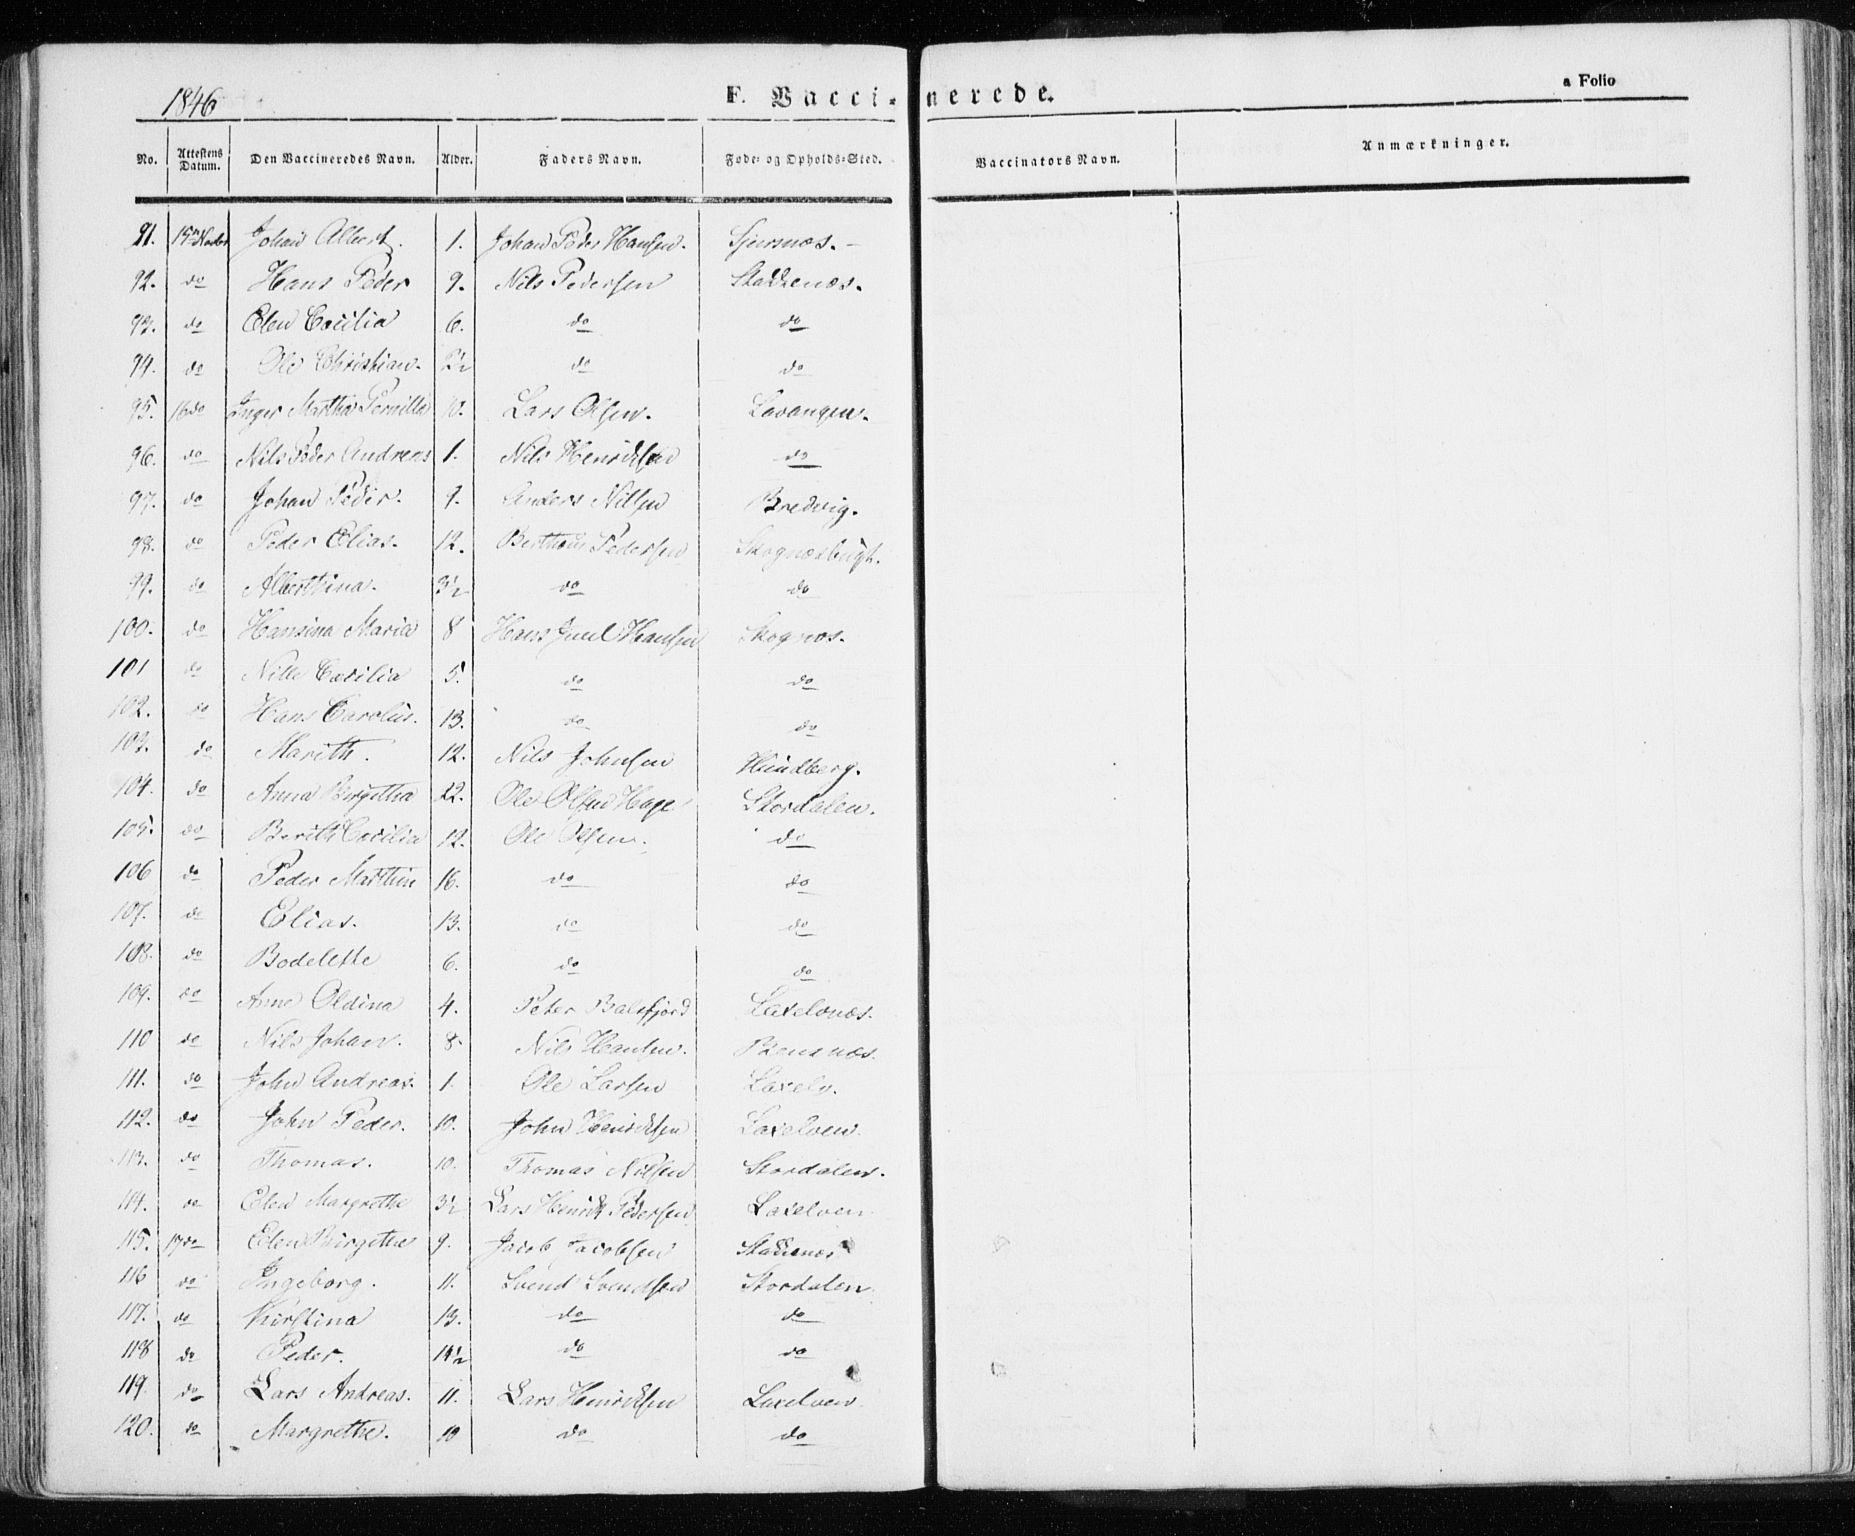 1846
F. Vacci-nerede.
a Folio
No. Attestens Datum. Den Vaccineredes Navn. Alder. Faders Navn. Føde- og Opholds-Sted. Vaccinators Navn. Anmærkninger.
91. 15 Johan Albert. 1. Johan Peder Hansen. Sjursnæs.
92. do Hans Peder 9. Nils Pedersen Stakkenæs.
93. do Elen Cecilia 6. do do
94. do Ole Christian. 2½ do do
95. 16 do Inger Martha Pernilla 10. Lars Olsen. Lavangen.
96. do Nils Peder Andreas 1. Nils Henriksen do
97. do Johan Peder. 9. Anders Nilsen Bredvig.
98. do Peder Elias. 12. Pedersen Skognæsbugt.
99. do Alberthina. 3½ do do
100. do Hansina Maria 8 Hans Juul Hansen Skognæs.
101 do Nille Cæcilia 5. do do
102. do Hans Carolus. 13. do do
103. do Marith. 12. Nils Johnsen Hundberg.
104. do Anna Birgitha 22. Ole Olsen Hage Stordalen.
105. do Berith Cecilia 12. Ole Olsen. do
106 do Peder Marthin 16. do do
107. do Elias. 13. do do
108. do Bodelethe 6. do do
109. do Anne Oldina 4. Peter Balsfjord Laxelvnæs.
110 do Nils Johan. 8. Nils Hansen.
111. do John Andreas. 1. Ole Larsen Laxelv.
112. do John Peder. 10. John Henriksen Laxelven.
113. do Thomas. 10. Thomas Nilsen Stordalen.
114. do Elen Margrethe 3½ Lars Henrik Pedersen Laxelven
115. 17 do Elen Birgithe 9. Jacob Jacobsen Stakkenæs
116 do Ingeborg. 11. Svend Svendsen Stordalen.
117. do Kirstina 13. do do
118 do Peder. 14½ do do
119. do Lars Andreas. 11. Lars Henriksen Laxelven
120. do Margrethe. 10 do do